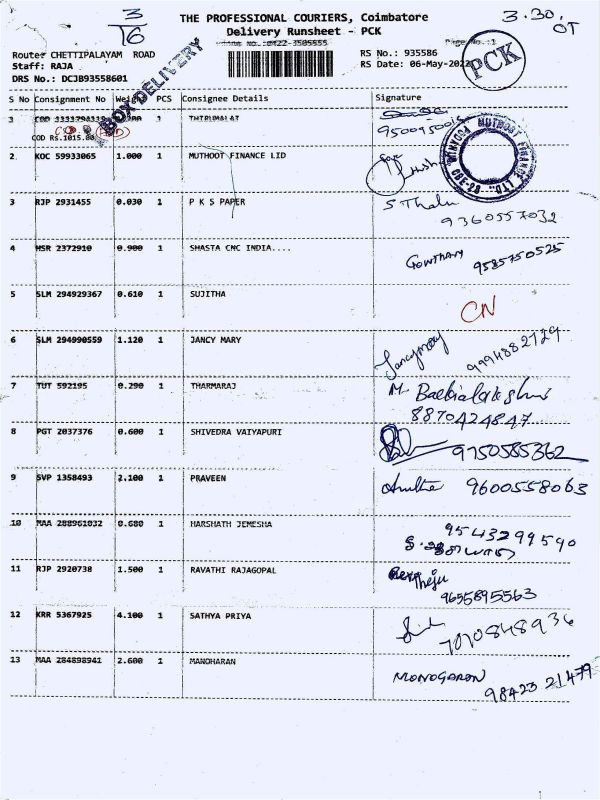 3
16
THE PROFESSIONAL COURIERS, Coimbatore
3.30.
OT
Delivery Runsheet - PCK
Page No.:1
PCK
Route: CHETTIPALAYAM ROAD
RS No.: 935586
Staff: RAJA
RS Date: 06-May-2022
DRS No.: DCJB93558601
BOX DELIVERY
S No Consignment No Weight PCS Consignee Details Signature
1 THIRUMALAI
COD Rs.1015.00
2 KOC 59933065 1.000 1 MUTHOOT FINANCE LID
3 RJP 2931455 0.030 1 P K S PAPER S Thalu
9360557032
4 MSR 2372910 0.900 1 SHASTA CNC INDIA.... Gowthamy 9585750525
5 SLM 294929367 0.610 1 SUJITHA CN
6 SLM 294990559 1.120 1 JANCY MARY Jancymary 9994882729
7 TUT 592195 0.290 1 THARMARAJ
8870424847
8 PGT 2037376 0.600 1 SHIVEDRA VAIYAPURI 9750585362
9 SVP 1358493 2.100 1 PRAVEEN 9600558063
10 MAA 288961032 0.680 1 HARSHATH JEMESHA 9543299590
11 RJP 2920738 1.500 1 RAVATHI RAJAGOPAL
9655895563
12 KRR 5367925 4.100 1 SATHYA PRIYA 7070848936
13 MAA 284898941 2.600 1 MANOHARAN MONOGARAN
98423 21479